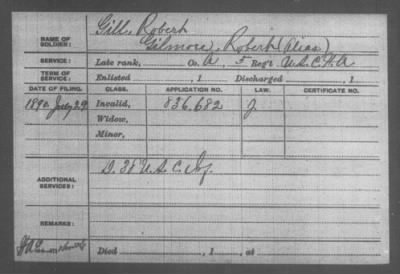 NAME OF SOLDIER: Gill, Robert
Gilmore, Robert (Alias)
SERVICE: Late rank, Co. A, 5 Reg't U.S.C.H.A
TERM OF SERVICE: Enlisted , 1 Discharged , 1
DATE OF FILING. CLASS. APPLICATION NO. LAW. CERTIFICATE NO.
1890 July 29 Invalid, 836,682 J.
Widow,
Minor,
ADDITIONAL SERVICES: D. 38 U.S.C. Inf.
REMARKS:
Died , 1 , at